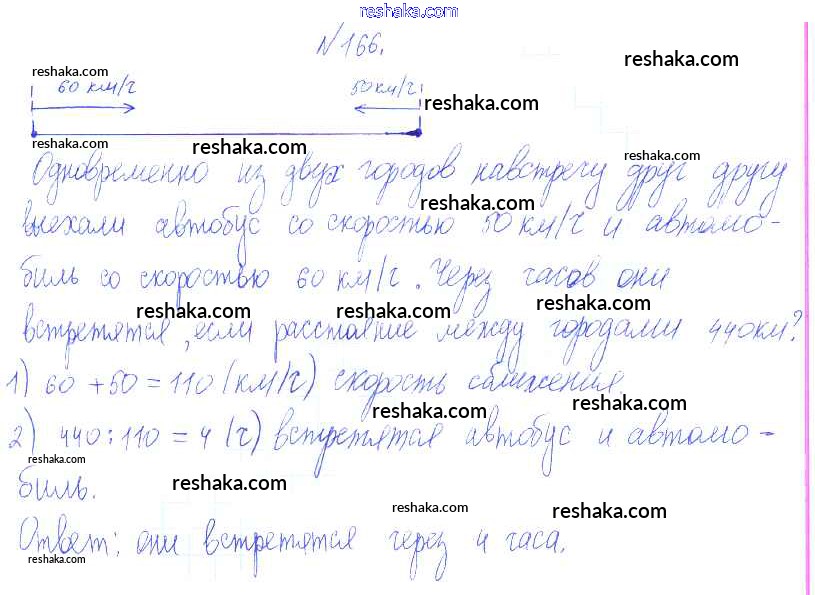 reshaka.com
№166.
reshaka.com
reshaka.com
60 км/ч 50 км/ч
reshaka.com
reshaka.com
reshaka.com
reshaka.com
Одновременно из двух городов навстречу друг другу
reshaka.com
выехали автобус со скоростью 50 км/ч и автомо-
reshaka.com
биль со скоростью 60 км/ч. Через часов они
reshaka.com reshaka.com reshaka.com
встретятся, если расстояние между городами 440км?
1) 60 + 50 = 110 (км/ч) скорость сближения
reshaka.com reshaka.com
2) 440 : 110 = 4 (ч) встретятся автобус и автомо-
reshaka.com
биль.
reshaka.com reshaka.com
reshaka.com reshaka.com
Ответ: они встретятся через 4 часа.
reshaka.com